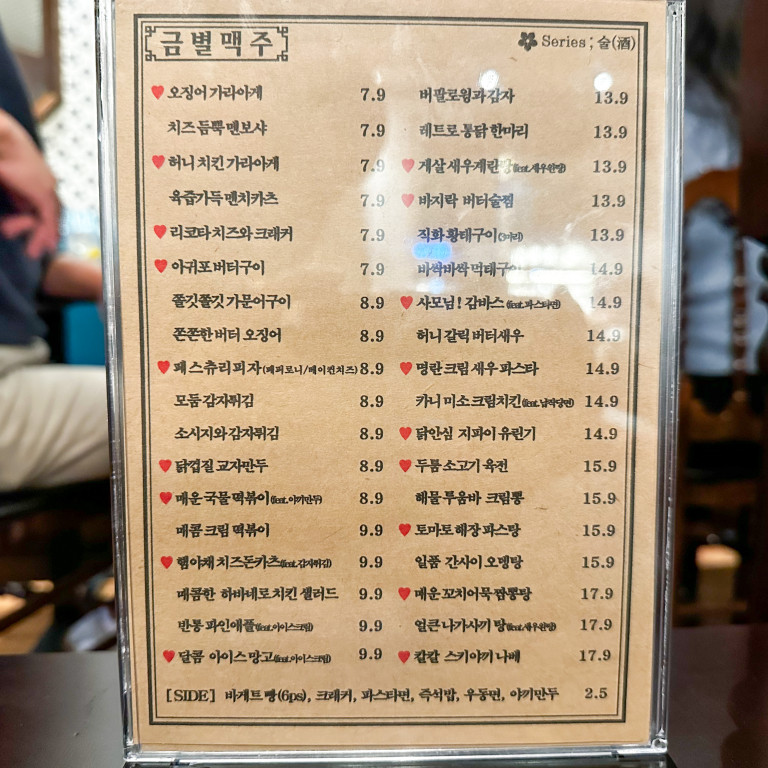 금별맥주
Series ; 술(酒)
♥ 오징어 가라아게 7.9
치즈 듬뿍 멘보샤 7.9
♥ 허니 치킨 가라아게 7.9
육즙가득 멘치카츠 7.9
♥ 리코타 치즈와 크래커 7.9
♥ 아귀포 버터구이 7.9
쫄깃쫄깃 가문어구이 8.9
쫀쫀한 버터 오징어 8.9
♥ 페스츄리 피자 (페퍼로니/메이컨치즈) 8.9
모둠 감자튀김 8.9
소시지와 감자튀김 8.9
♥ 닭껍질 교자만두 8.9
♥ 매운 국물 떡볶이 (feat.야끼만두) 8.9
매콤 크림 떡볶이 9.9
♥ 햄야채 치즈돈카츠 (feat.감자튀김) 9.9
매콤한 하바네로 치킨 샐러드 9.9
반통 파인애플 (feat.아이스크림) 9.9
♥ 달콤 아이스 망고 (feat.아이스크림) 9.9
버팔로윙과 감자 13.9
레트로 통닭 한마리 13.9
♥ 게살 새우계란탕 (feat.새우완탕) 13.9
♥ 바지락 버터술찜 13.9
직화 황태구이 (3마리) 13.9
바싹바싹 먹태구이 14.9
♥ 사모님! 감바스 (feat.파스타면) 14.9
허니 갈릭 버터새우 14.9
♥ 명란 크림 새우 파스타 14.9
카니 미소 크림치킨 (feat.납작당면) 14.9
♥ 닭안심 지파이 유린기 14.9
♥ 두툼 소고기 육전 15.9
해물 투움바 크림뽕 15.9
♥ 토마토 해장 파스탕 15.9
일품 간사이 오뎅탕 15.9
♥ 매운 꼬치어묵 짬뽕탕 17.9
얼큰 나가사끼 탕 (feat.새우완탕) 17.9
♥ 칼칼 스키야끼 나베 17.9
[SIDE] 바게트 빵(6ps), 크래커, 파스타면, 즉석밥, 우동면, 야끼만두 2.5